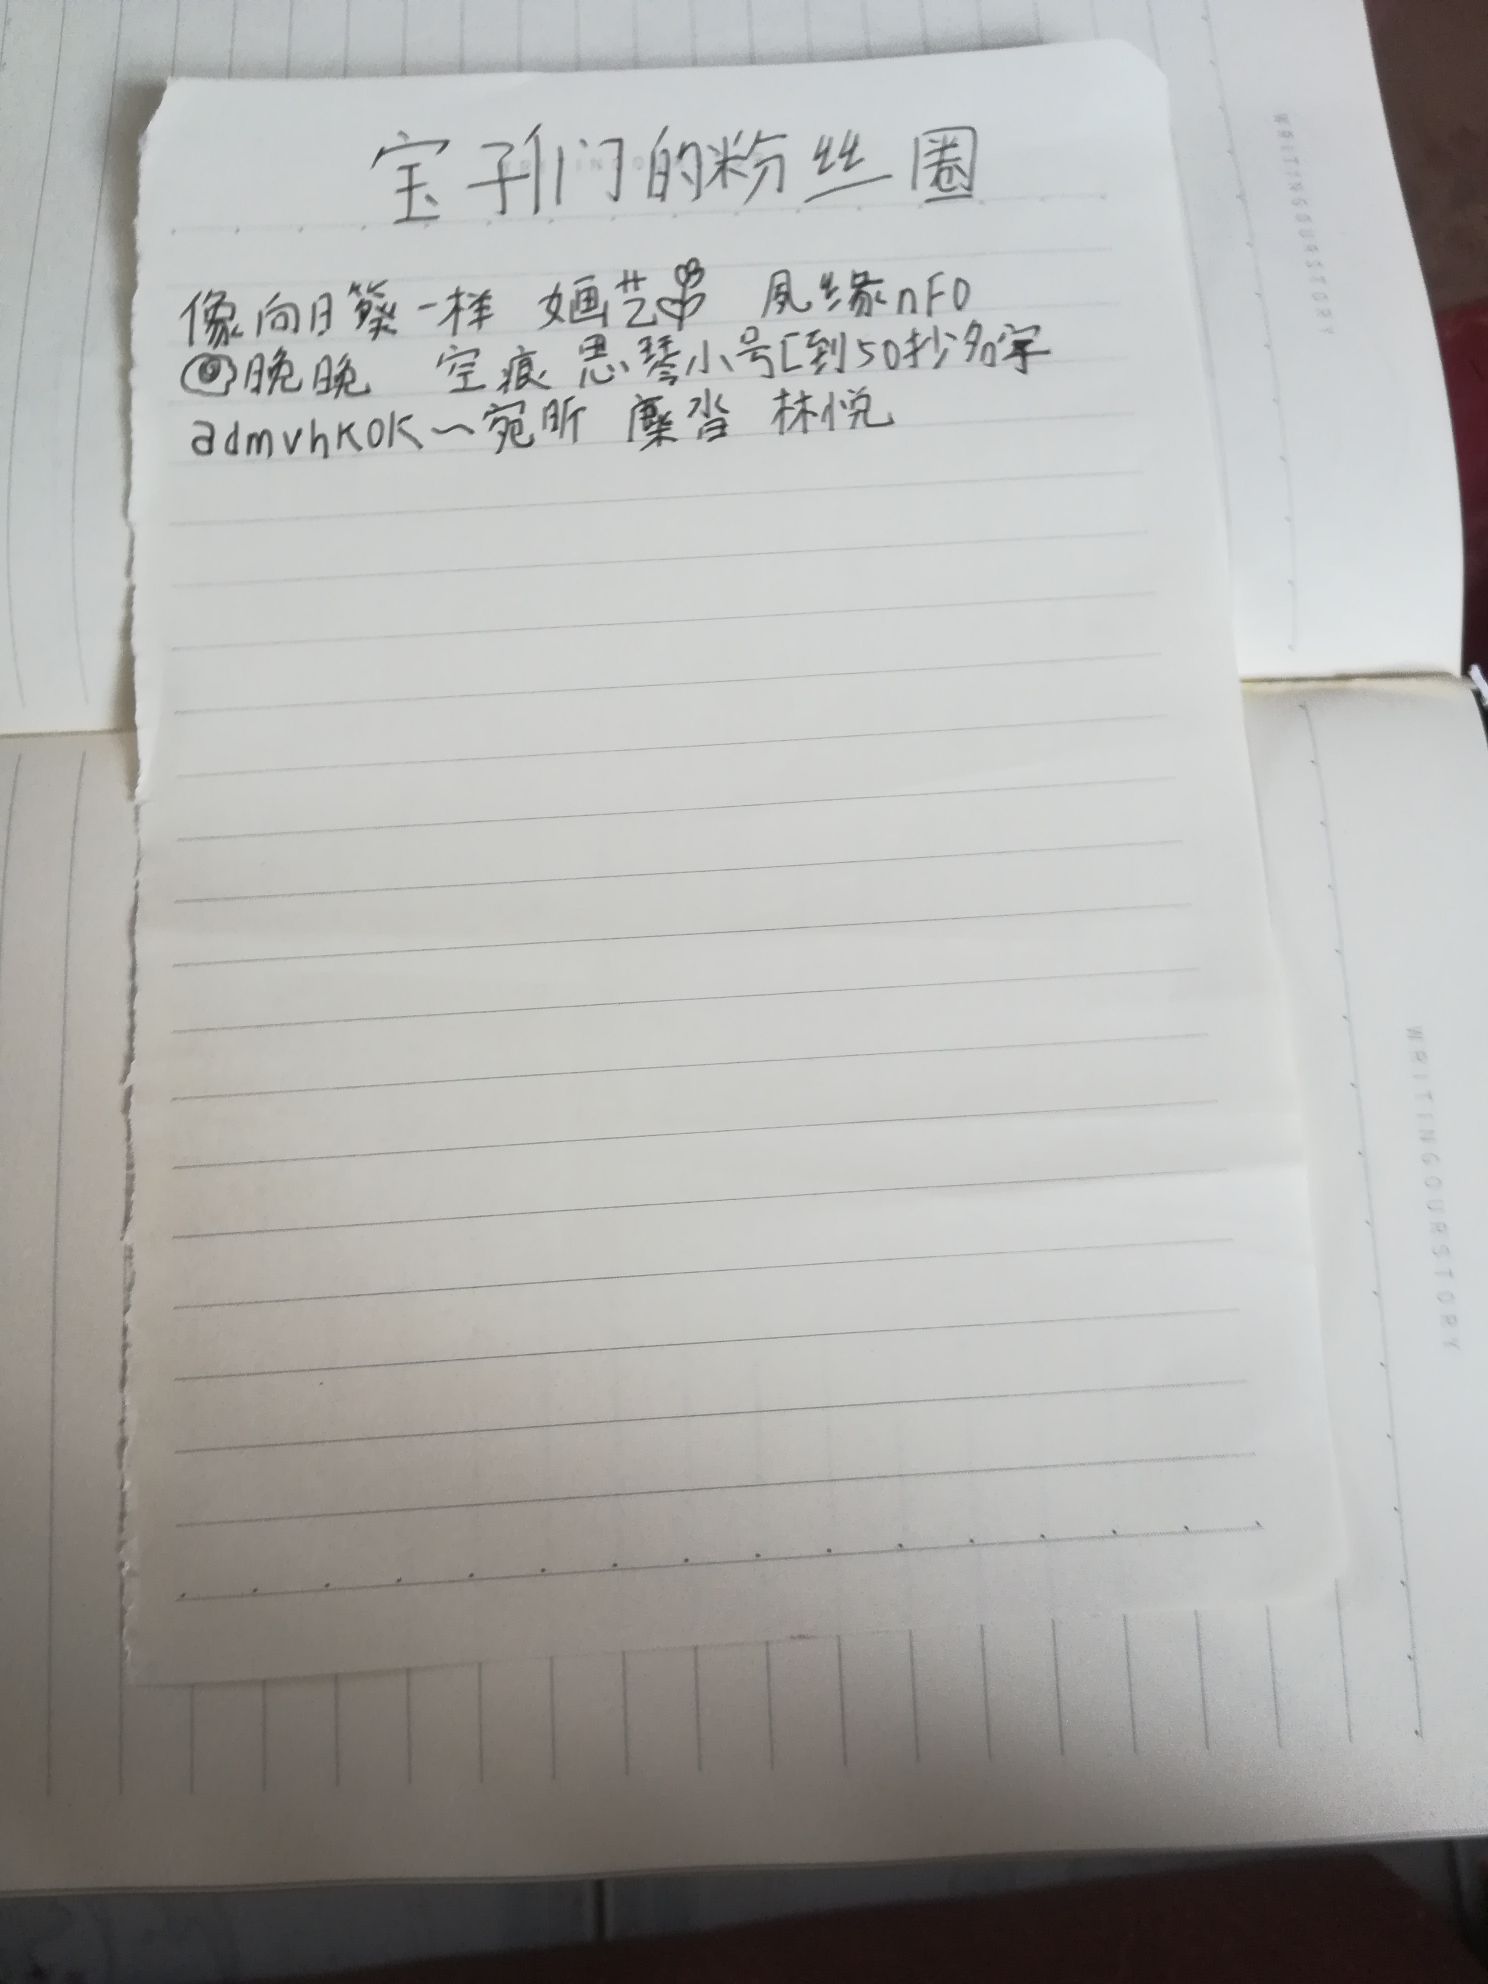 宝子们的粉丝圈
像向日葵一样 婳艺 風缘nFO
晚晚 空痕 思琴小号[到50抄名字
admvhKOK～宛昕 麋 林悦
WRITINGOURSTORY
WRITINGOURSTORY